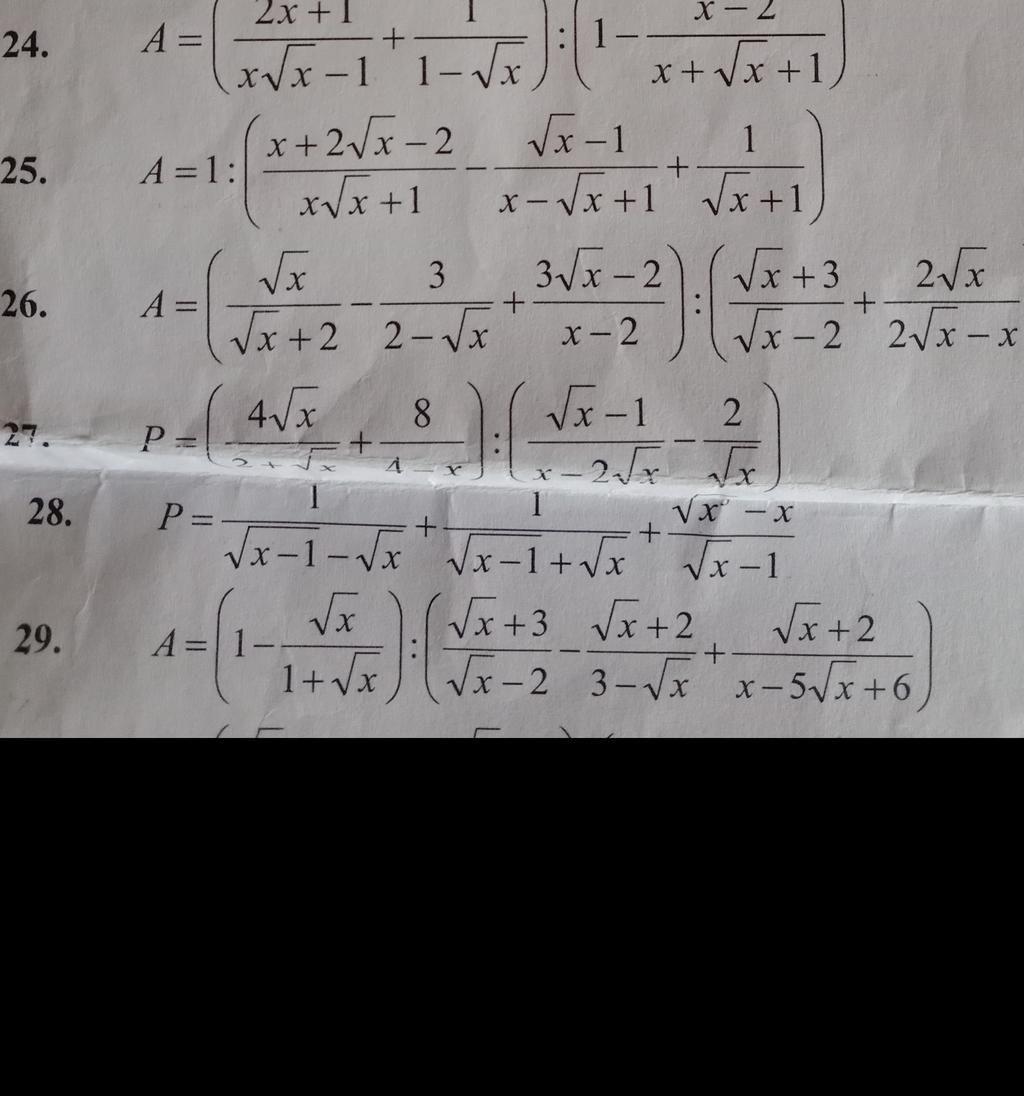 24. A = ( (2x + 1)/(x√x − 1) + 1/(1 − √x) ) : ( 1 − (x − 2)/(x + √x + 1) )
25. A = 1 : ( (x + 2√x − 2)/(x√x + 1) − (√x − 1)/(x − √x + 1) + 1/(√x + 1) )
26. A = ( √x/(√x + 2) − 3/(2 − √x) + (3√x − 2)/(x − 2) ) : ( (√x + 3)/(√x − 2) + 2√x/(2√x − x)
27. P = ( 4√x/(2 + √x) + 8/(4 − x) ) : ( (√x − 1)/(x − 2√x) − 2/√x )
28. P = 1/(√(x − 1) − √x) + 1/(√(x − 1) + √x) + (√x³ − x)/(√x − 1)
29. A = ( 1 − √x/(1 + √x) ) : ( (√x + 3)/(√x − 2) − (√x + 2)/(3 − √x) + (√x + 2)/(x − 5√x + 6) )